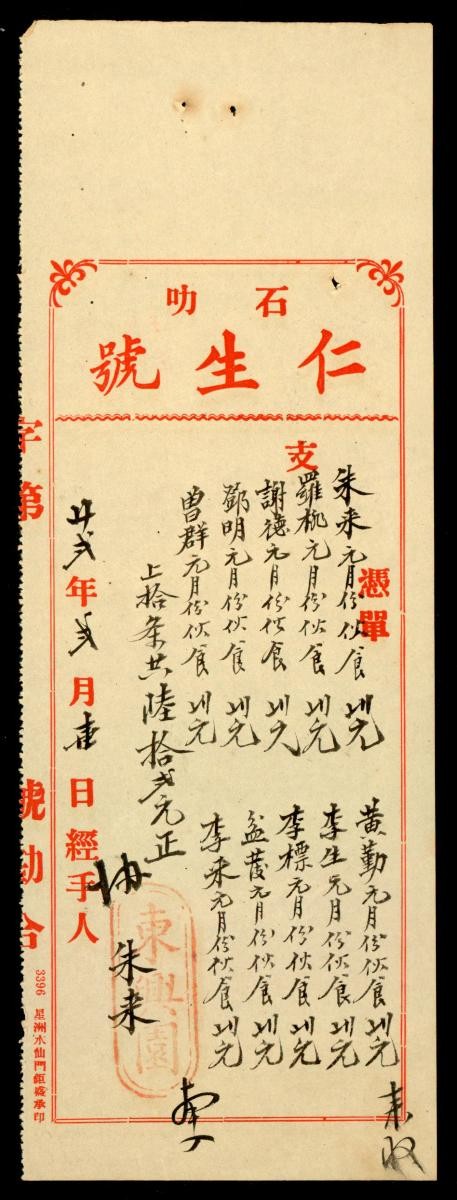 石叻
仁生號
憑單
支
朱来元月份伙食 元
羅桃元月份伙食 元
謝德元月份伙食 元
鄧明元月份伙食 元
曾群元月份伙食 元
黄勤元月份伙食 元
李生元月份伙食 元
李標元月份伙食 元
益茂元月份伙食 元
李来元月份伙食 元
上拾条共陸拾弍元正
東興園
朱来
廿弍年弍月 日經手人
字第 號勘合
3396 星洲水仙門鉅盛承印